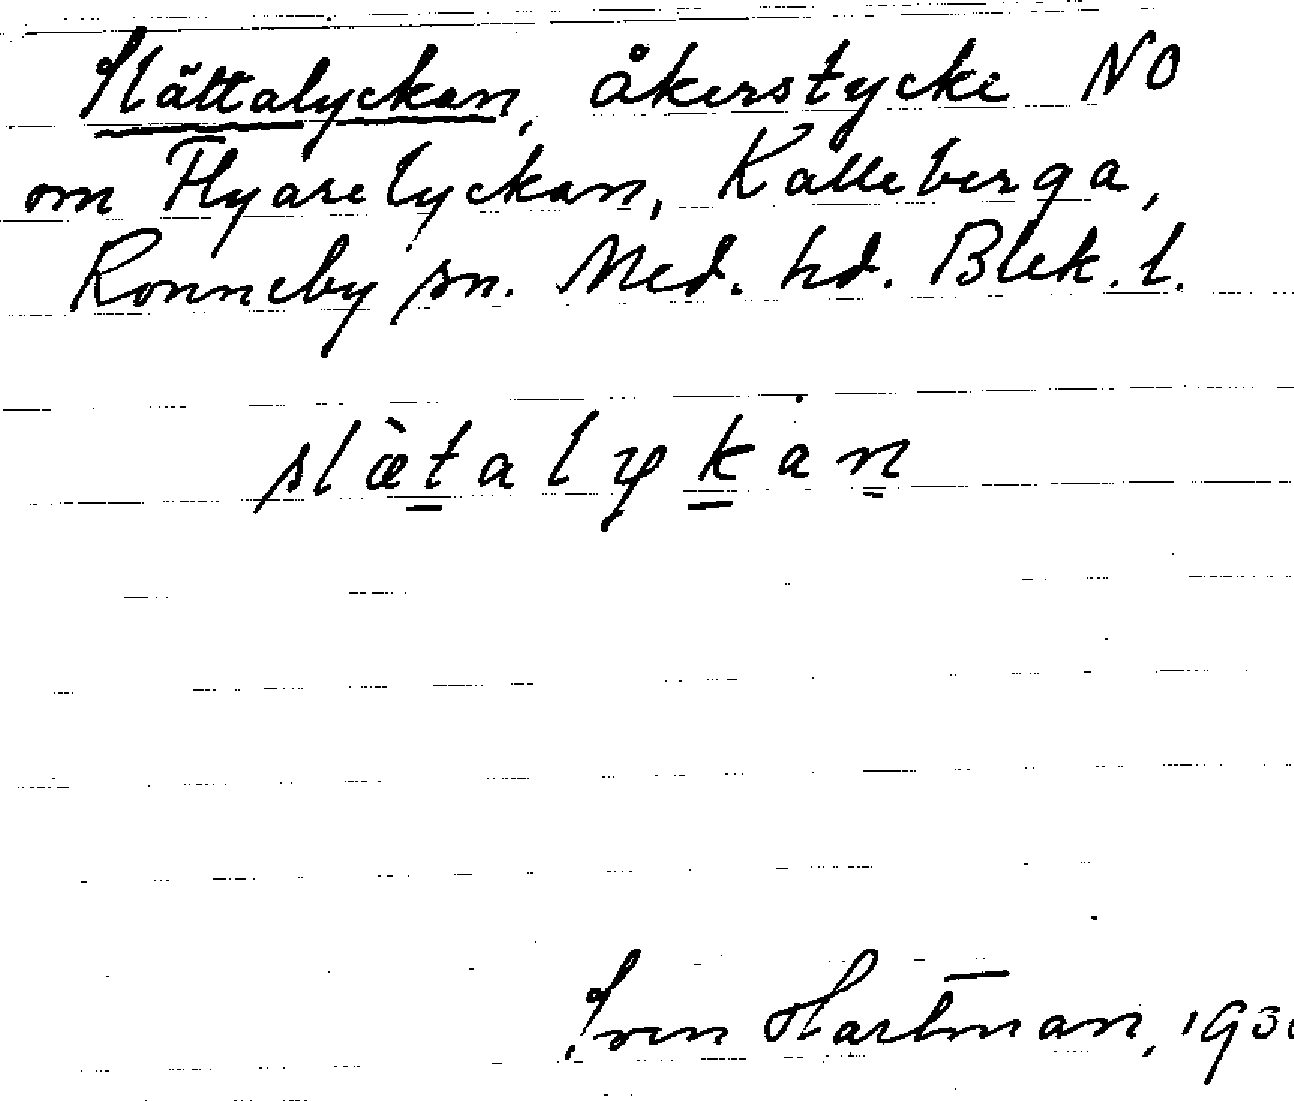 Slättalyckan, åkerstycke NO
om Flyarelyckan, Kalleberga,
Ronneby sn. Med. hd. Blek. l.
slætalykan
Sven Hartman, 193